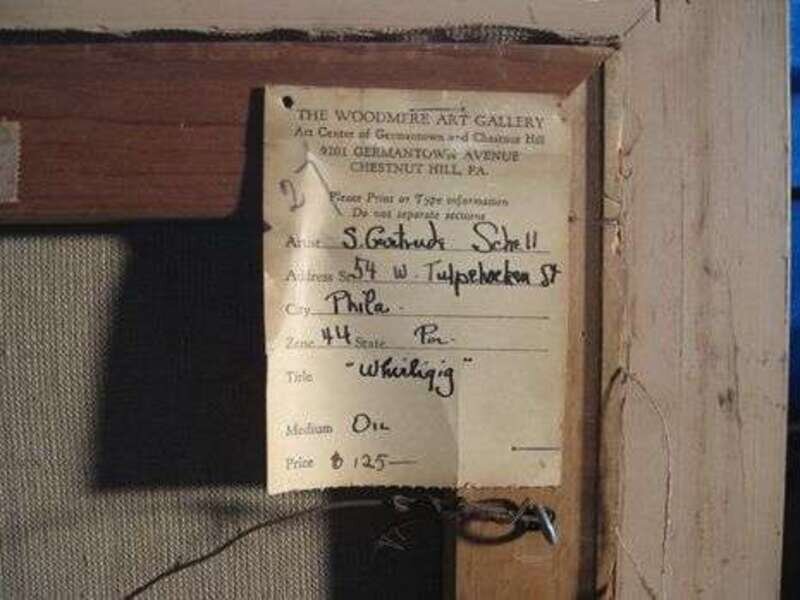 THE WOODMERE ART GALLERY
Art Center of Germantown and Chestnut Hill
9201 GERMANTOWN AVENUE
CHESTNUT HILL, PA.
2
Please Print or Type information
Do not separate sections
Artist S. Gertrude Schell
Address St. 54 W. Tulpehocken St
City Phila.
Zone 44 State Pa.
Title "Whirligig"
Medium OIL
Price $125—